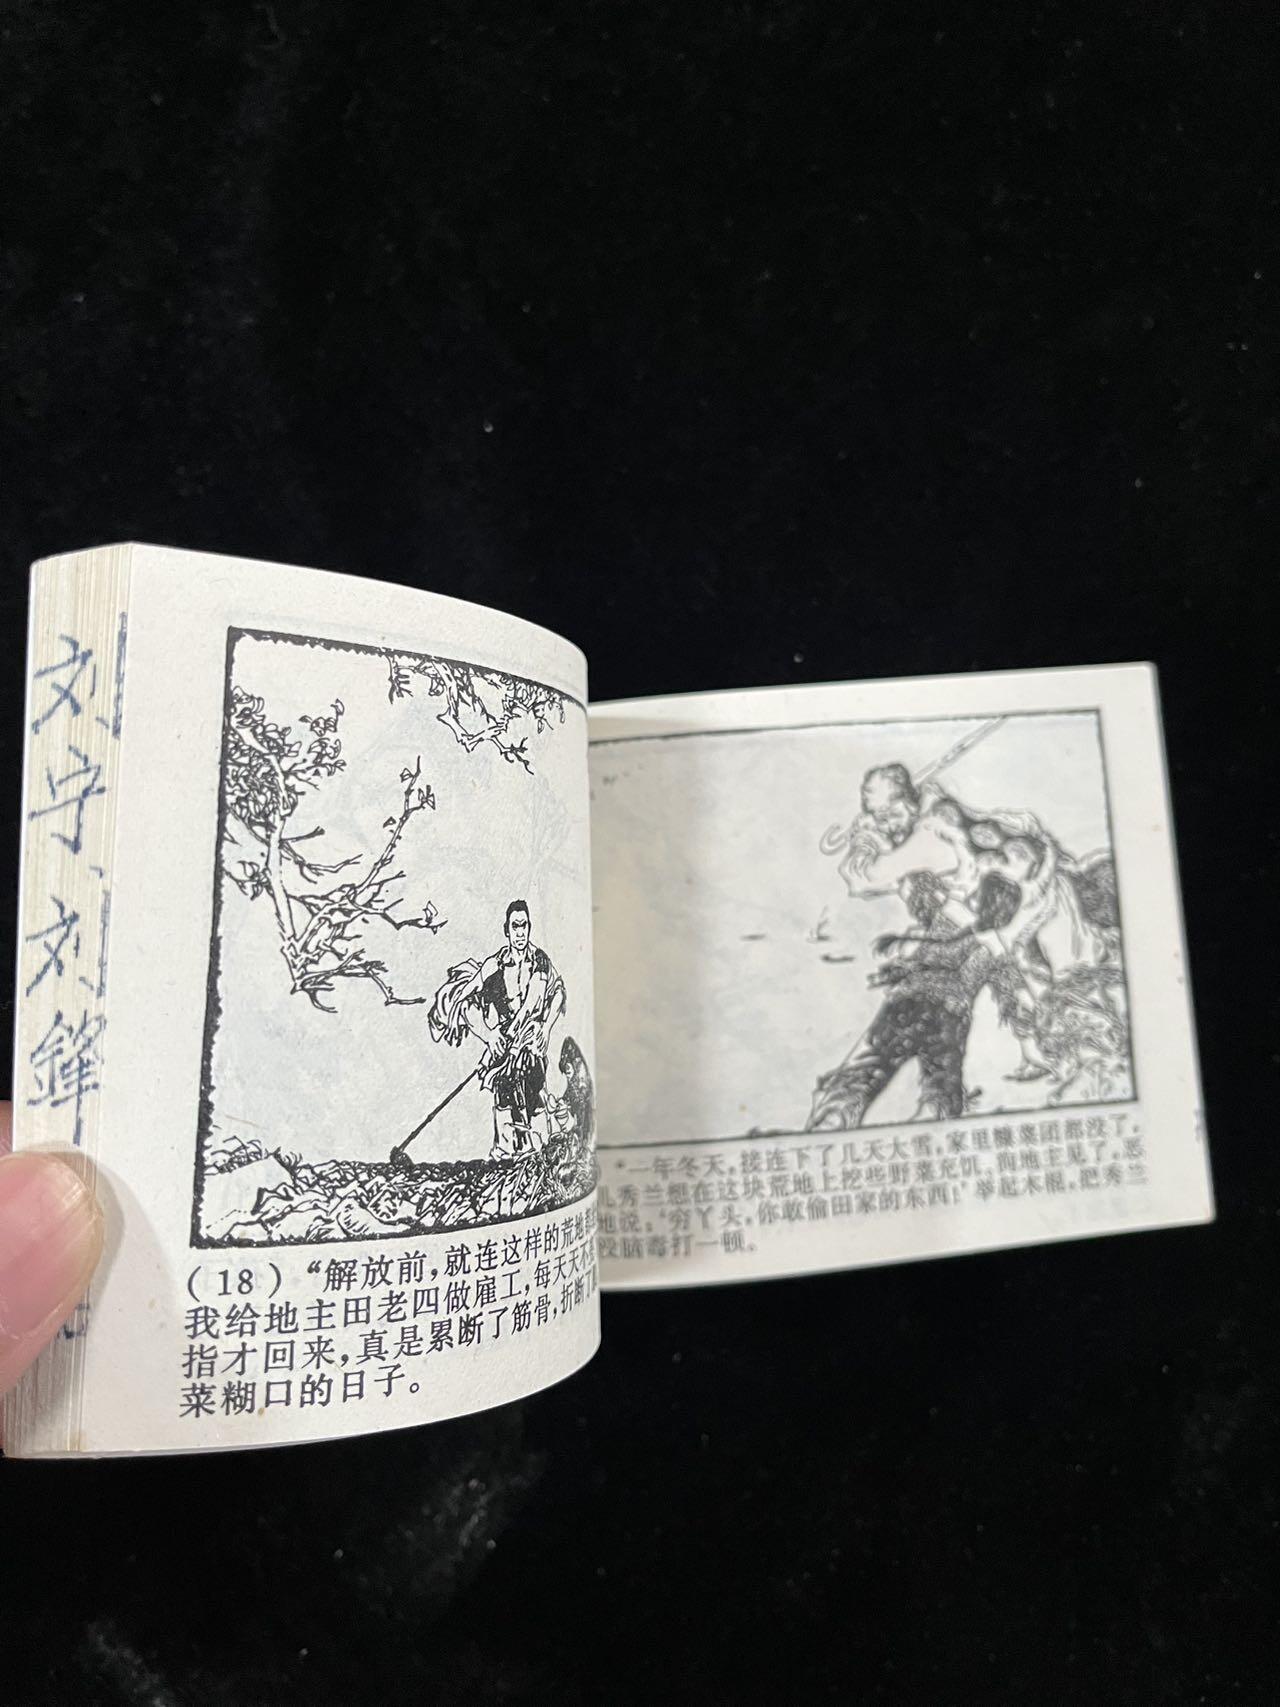 刘守、刘锋
(18)“解放前,就连这样的荒地
我给地主田老四做雇工,每天天不
指才回来,真是累断了筋骨,折断了
菜糊口的日子。
“一年冬天,接连下了几天大雪,家里糠菜团都没了。
儿秀兰想在这块荒地上挖些野菜充饥,狗地主见了,恶
地说:‘穷丫头,你敢偷田家的东西!’举起木棍,把秀兰
没脑毒打一顿。